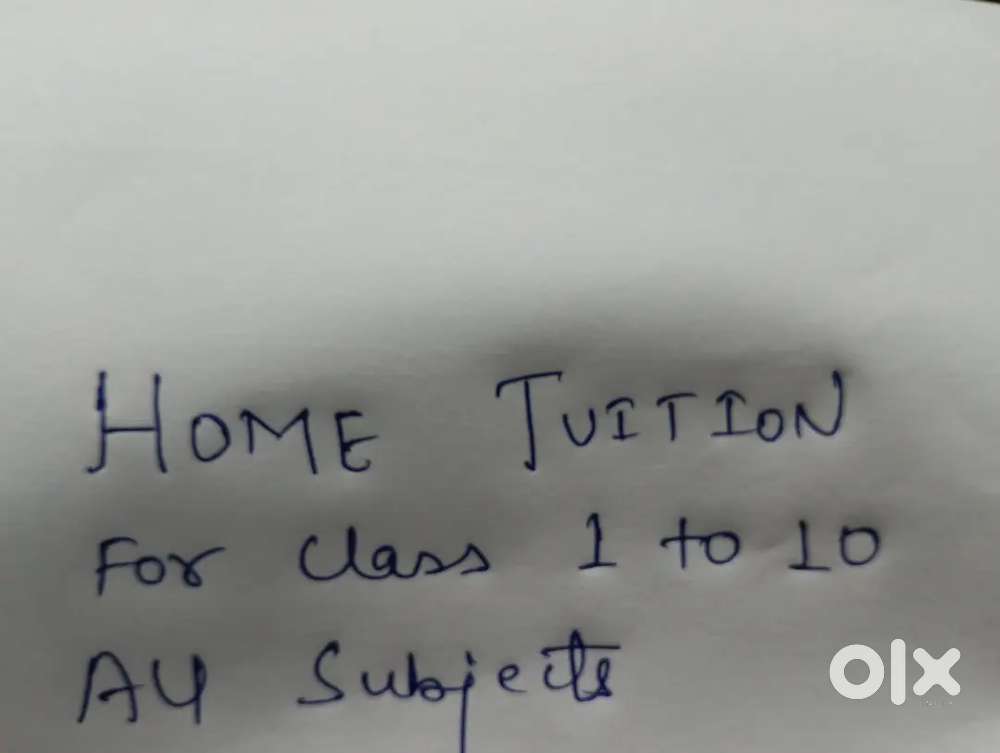 HOME TUITION
For Class 1 to 10
All Subjects
olx